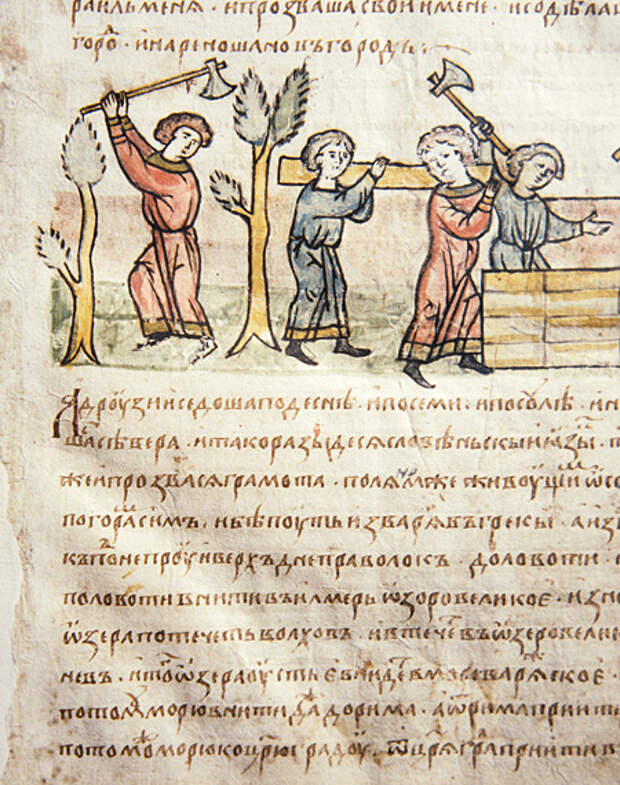 раильменя · ипрозвашасвоиимене · исодѣла
гороⷣ · инарекошановъгородъ ·
Я дроузиіиседошаподеснѣ · ипосеми · ипосоулѣ · ин
шасѣвера · итакоразыидесясловѣньскыиꙗзыⷦ ·
жеипрозвасяграмота · поляⷨⷪже живоущиⷨ ѡсо
погораⷨсимъ · ибѣпоутьизваряⷢвъгрекы · аиз
къпонепроуиверхъднеправолокъ · доловоти ·
половотивнитивъилмерьѡзоровеликоє · изне
ѡзерапотечетьволховъ · ивтечеⷮвъѡзеровели
невъ · итоⷢѡзераоустьєвнидеⷮвмореваряⷤскоє ·
потомⷹморювнитиⷣадорима · аѿримаприити
потомⷹⷤморюкоцрⷭюградоу · ѿцрⷭяграⷣприитив